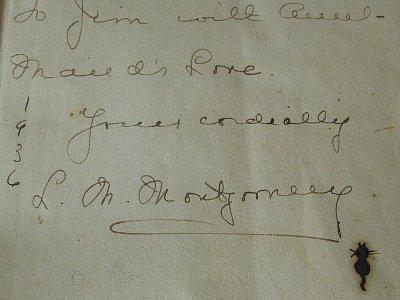 to Jim with Aunt
Maud's Love.
Yours cordially
L. M. Montgomery
1
9
3
6